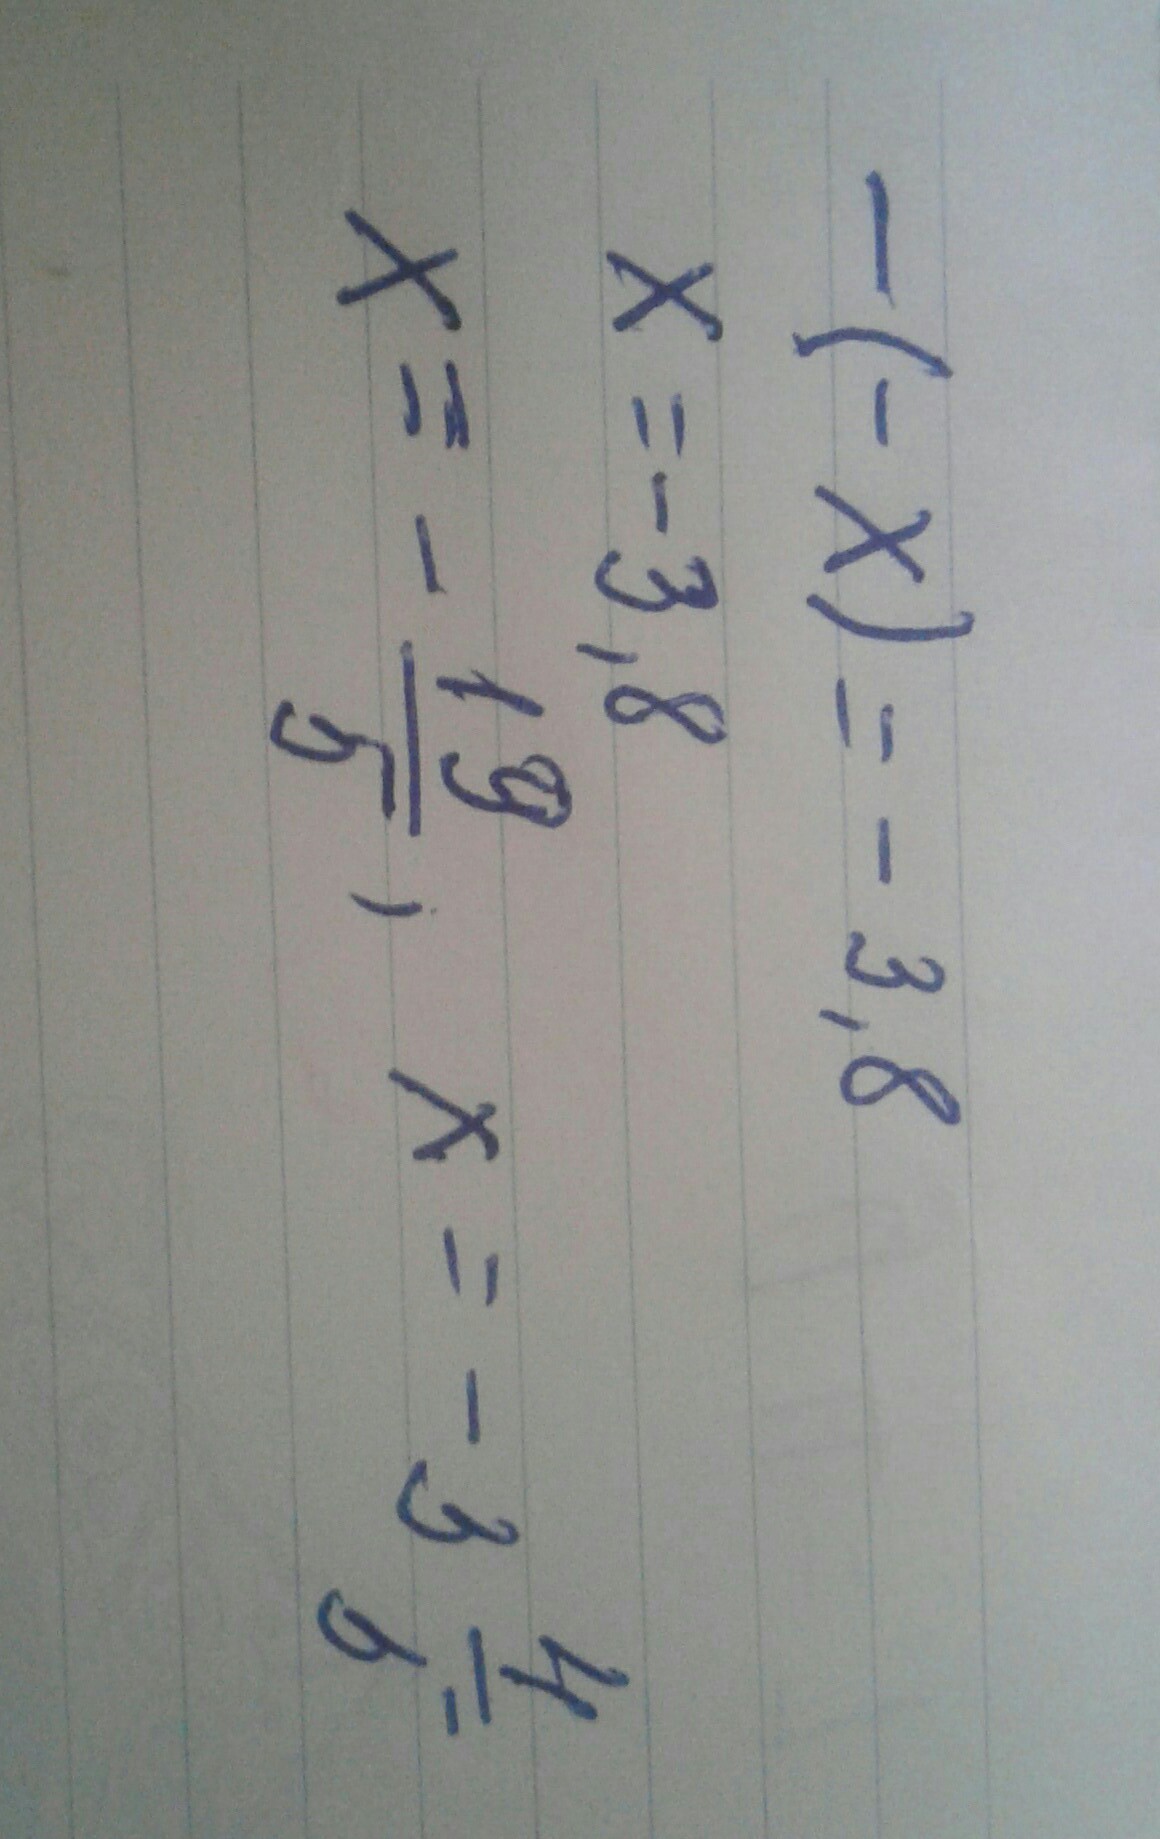 -(-x) = -3,8
x = -3,8
x = -19/5, x = -3 4/5